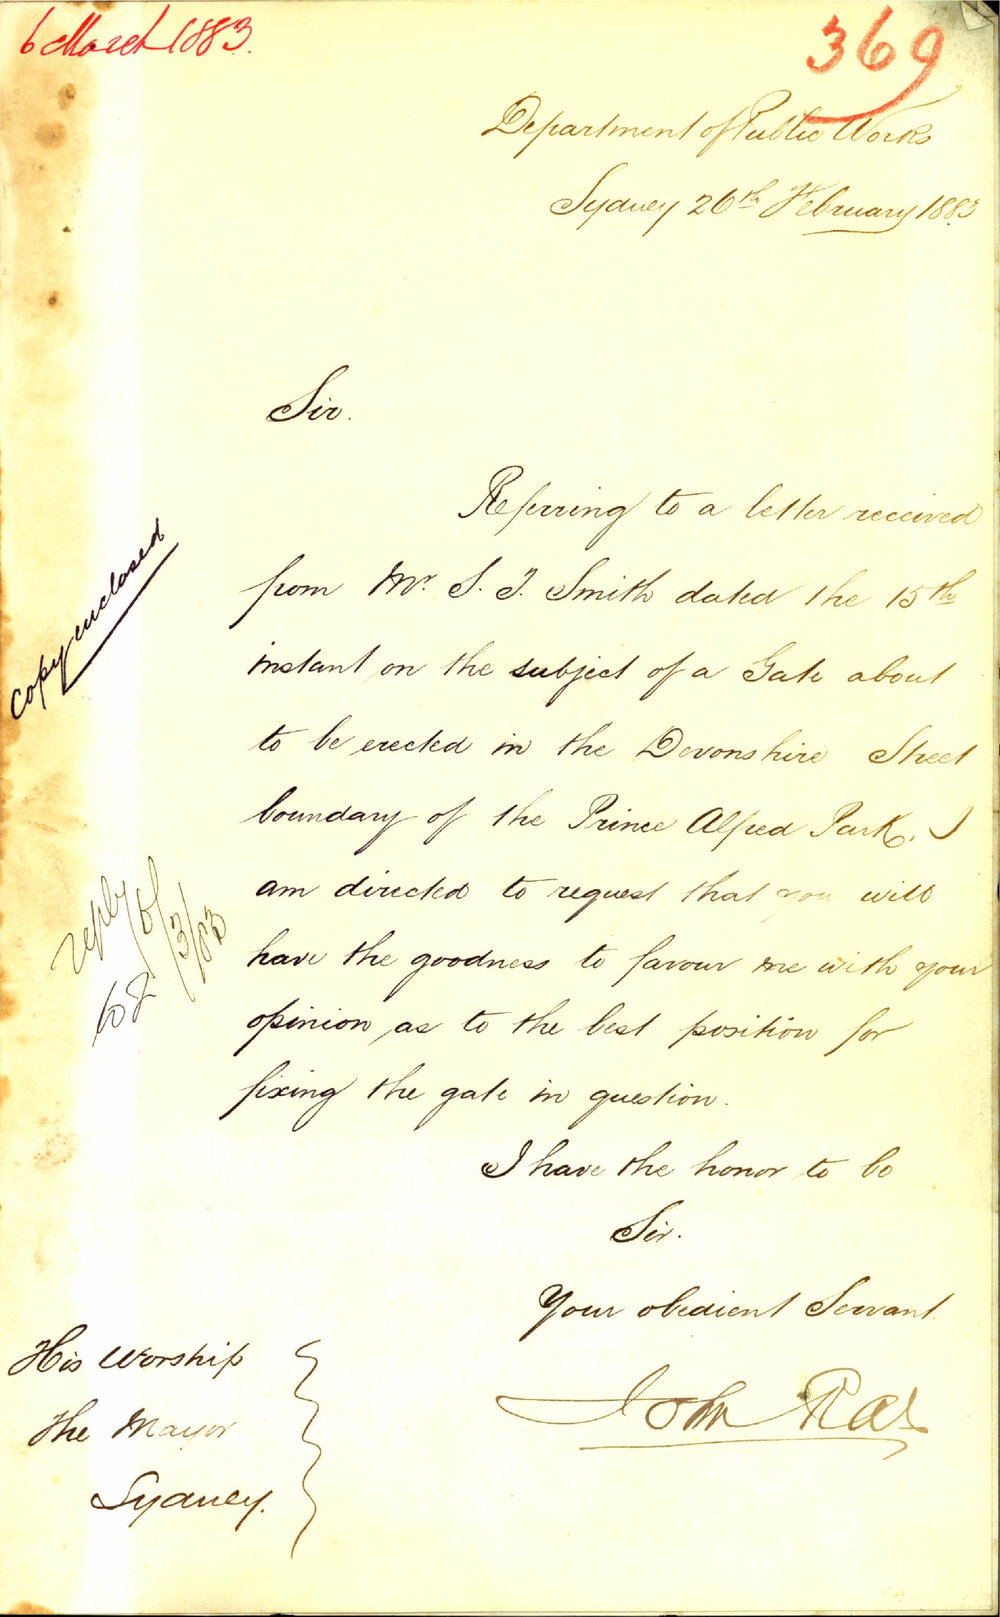 6 March 1883.
369
Department of Public Works
Sydney 26th February 1883
Sir.
Referring to a letter received
from Mr. S. T. Smith dated the 15th
instant on the subject of a Gate about
to be erected in the Devonshire Street
boundary of the Prince Alfred Park, I
am directed to request that you will
have the goodness to favour me with your
opinion as to the best position for
fixing the gate in question.
I have the honor to be
Sir.
Your obedient Servant
John Rae
His Worship
The Mayor
Sydney.
copy enclosed
reply 6/3/83